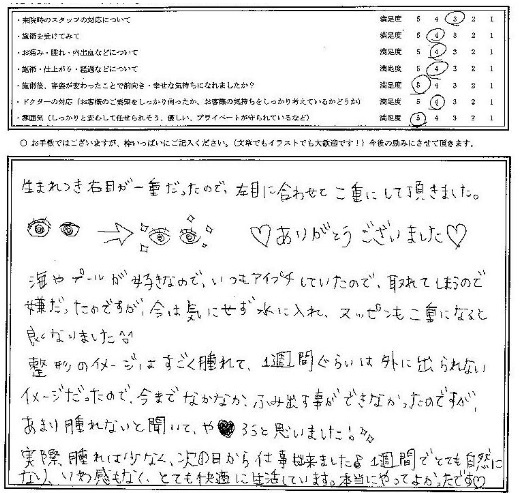 ・来院時のスタッフの対応について 満足度 5 4 3 2 1
・施術を受けてみて 満足度 5 4 3 2 1
・お痛み・腫れ・内出血などについて 満足度 5 4 3 2 1
・施術・仕上がり・経過などについて 満足度 5 4 3 2 1
・施術後、容姿が変わったことで前向き・幸せな気持ちになれましたか? 満足度 5 4 3 2 1
・ドクターの対応(お客様のご要望をしっかり伺ったか、お客様の気持ちをしっかり考えているかどうか) 満足度 5 4 3 2 1
・雰囲気(しっかりと安心して任せられそう、優しい、プライベートが守られているなど) 満足度 5 4 3 2 1
○ お手数ではございますが、枠いっぱいにご記入ください。(文章でもイラストでも大歓迎です!)今後の励みにさせて頂きます。
生まれつき右目が一重だったので、左目に合わせて二重にして頂きました。
→ ♡ありがとうございました♡
海やプールが好きなので、いつもアイプチしていたので、取れてしまうので
嫌だったのですが、今は気にせず水に入れ、スッピンも二重になると
良くなりました^^
整形のイメージはすごく腫れて、1週間ぐらいは外に出られない
イメージだったので、今までなかなか、ふみ出す事ができなかったのですが、
あまり腫れないと聞いて、や♥ろうと思いました!
実際、腫れは少なく、次の日から仕事も出来ました♪1週間でとても自然に
なり、いわ感もなく、とても快適に生活しています。本当にやってよかったです♡